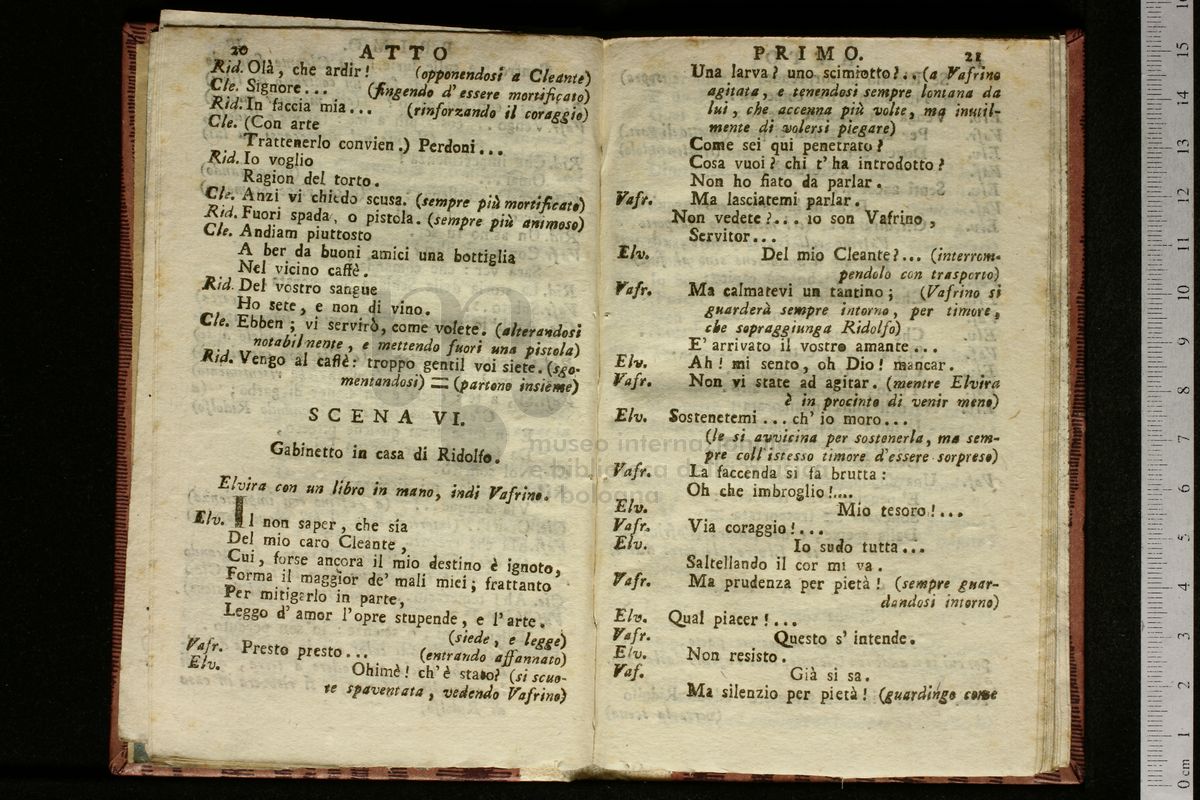 20 ATTO
Rid. Olà, che ardir! (opponendosi a Cleante)
Cle. Signore... (fingendo d'essere mortificato)
Rid. In faccia mia... (rinforzando il coraggio)
Cle. (Con arte
Trattenerlo convien.) Perdoni...
Rid. Io voglio
Ragion del torto.
Cle. Anzi vi chiedo scusa. (sempre più mortificato)
Rid. Fuori spada, o pistola. (sempre più animoso)
Cle. Andiam piuttosto
A ber da buoni amici una bottiglia
Nel vicino caffè.
Rid. Del vostro sangue
Ho sete, e non di vino.
Cle. Ebben; vi servirò, come volete. (alterandosi
notabilnente, e mettendo fuori una pistola)
Rid. Vengo al caffè: troppo gentil voi siete. (sgo-
mentandosi) = (partono insieme)
SCENA VI.
Gabinetto in casa di Ridolfo.
Elvira con un libro in mano, indi Vafrino.
Elv. Il non saper, che sia
Del mio caro Cleante,
Cui, forse ancora il mio destino è ignoto,
Forma il maggior de' mali miei; frattanto
Per mitigarlo in parte,
Leggo d'amor l'opre stupende, e l'arte.
(siede, e legge)
Vafr. Presto presto... (entrando affannato)
Elv. Ohimè! ch'è stato? (si scuo-
te spaventata, vedendo Vafrino)
PRIMO. 21
Una larva? uno scimiotto?.. (a Vafrino
agitata, e tenendosi sempre lontana da
lui, che accenna più volte, ma inutil-
mente di volersi piegare)
Come sei qui penetrato?
Cosa vuoi? chi t'ha introdotto?
Non ho fiato da parlar.
Vafr. Ma lasciatemi parlar.
Non vedete?... io son Vafrino,
Servitor...
Elv. Del mio Cleante?... (interrom-
pendolo con trasporto)
Vafr. Ma calmatevi un tantino; (Vafrino si
guarderà sempre intorno, per timore,
che sopraggiunga Ridolfo)
E' arrivato il vostro amante...
Elv. Ah! mi sento, oh Dio! mancar.
Vafr. Non vi state ad agitar. (mentre Elvira
è in procinto di venir meno)
Elv. Sostenetemi... ch'io moro...
(le si avvicina per sostenerla, ma sem-
pre coll'istesso timore d'essere sorpreso)
Vafr. La faccenda si fa brutta:
Oh che imbroglio!....
Elv. Mio tesoro!...
Vafr. Via coraggio!...
Elv. Io sudo tutta...
Saltellando il cor mi va.
Vafr. Ma prudenza per pietà! (sempre guar-
dandosi intorno)
Elv. Qual piacer!...
Vafr. Questo s'intende.
Elv. Non resisto.
Vaf. Già si sa.
Ma silenzio per pietà! (guardingo come